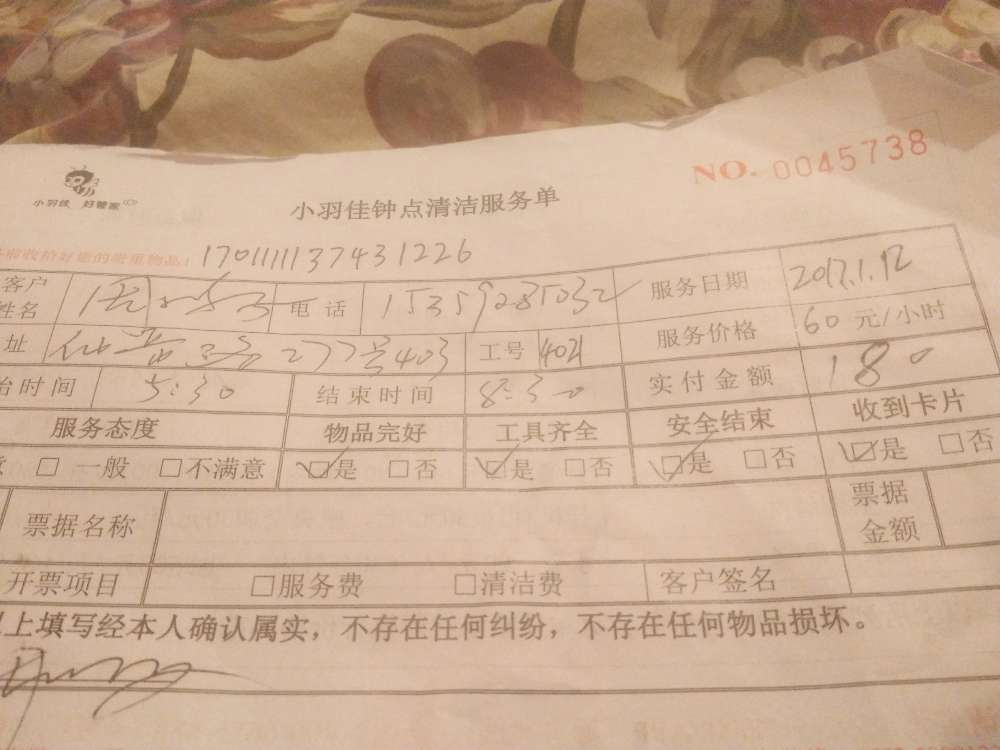 NO. 0045738
小羽佳 好管家
小羽佳钟点清洁服务单
前收拾好您的贵重物品！ 1701111137431226
客户姓名 电话 15359285032 服务日期 2017.1.12
址 仙岳路277号403 工号 4021 服务价格 60元/小时
始时间 5:30 结束时间 8:30 实付金额 180
服务态度 物品完好 工具齐全 安全结束 收到卡片
□一般 □不满意 ☑是 □否 ☑是 □否 ☑是 □否 ☑是 □否
票据名称 票据金额
开票项目 □服务费 □清洁费 客户签名
上填写经本人确认属实，不存在任何纠纷，不存在任何物品损坏。